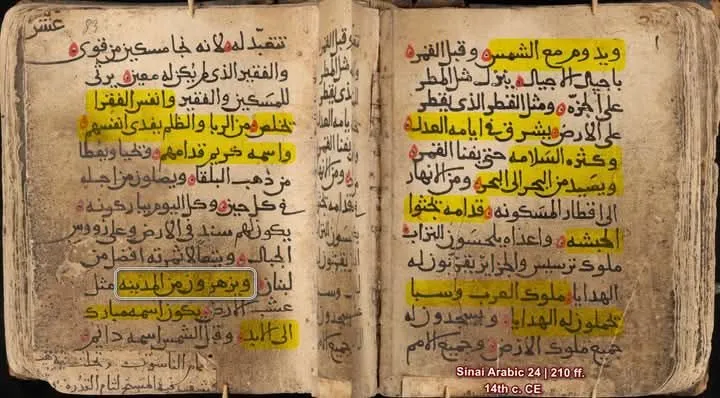 ويدوم مع الشمس وقبل القمر
باجيال الاجيال ينزل مثل المطر
على الجزه ومثل القطر الذي يقطر
على الارض يشرق في ايامه العدل
وكثره السلامه حتى يفنا القمر
ويصيد من البحر الى البحر ومن الانهار
الى اقطار المسكونه قدامه تجثوا
الحبشه واعداه يلحسون التراب
ملوك ترسيس والجزاير يقربون له
الهدايا ملوك العرب وسبا
تحملون له الهدايا ويسجدون له
جميع ملوك الارض وجميع الامم
تتعبد له لانه نجا مسكين من قوي
والفقير الذي لم يكن له معين يرثي
للمسكين والفقير وانفس الفقرا
تخلص من الربا والظلم يفدي انفسهم
واسمه كريم قدامهم ونحيا ويعطا
من ذهب البلقا ويصلون من اجله
في كل حين وكل اليوم يباركونه
يكون لهم سند في الارض وعلى رووس
الجبال ويتعالا ثمرته افضل من
لبنان ويزهرون من المدينه مثل
عشب الارض يكون اسمه مبارك
الى الابد وقبل الشمس اسمه دايم
Sinai Arabic 24 | 210 ff.
14th c. CE